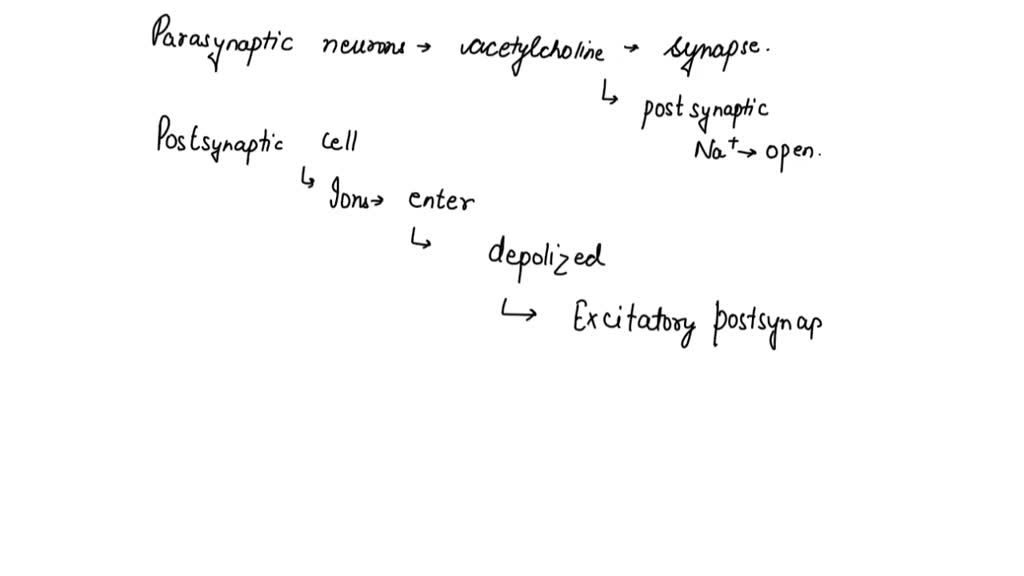 Parasynaptic neurons → acetylcholine → synapse.
↳ postsynaptic
Na⁺ → open.
Postsynaptic cell
↳ Ions → enter
↳ depolized
↳ Excitatory postsynap